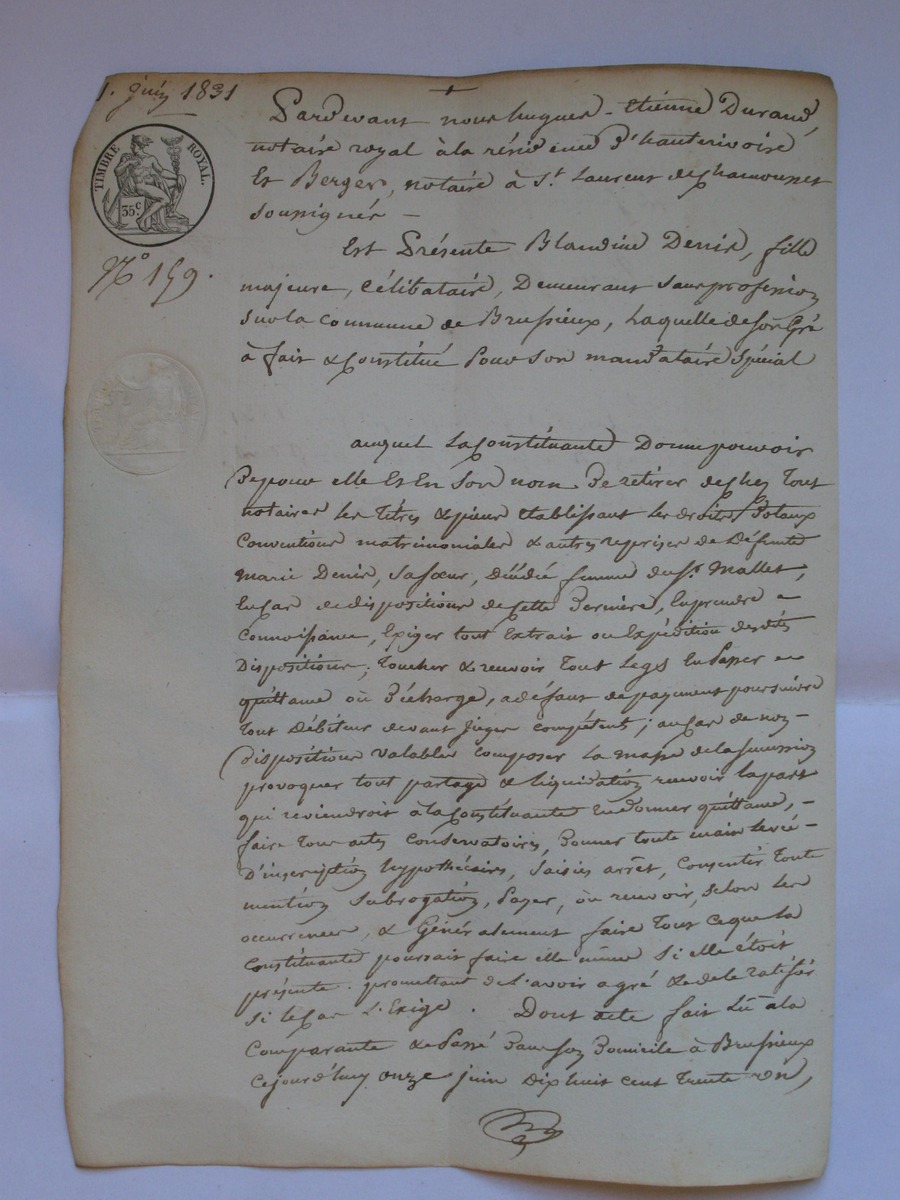 1. juin 1831
TIMBRE ROYAL.
35c
N° 159.
Pardevant nous hugues-étienne Durand,
notaire royal à la résidence D'hauterivoire
Et Berger, notaire à St. Laurent de Chamousset
soussignés -
Est Présente Blandine Denis, fille
majeure, Célibataire, Demeurant sans profession
sur la Commune de Brussieux, Laquelle de son Gré
à fait & Constitué Pour son mandataire spécial
auquel La Constituante Donne pouvoir
De pour elle Et En Son nom De retirer de Chez Tout
notaires les Titres & pièces établissant les droits Dotaux
Conventions matrimoniales & autres reprises de Défunte
Marie Denis, sa sœur, Décédée femme du Sr. Mallet,
En Cas de dispositions de Cette Dernière, En prendre
Connoissance, Exiger tout Extrait ou Expédition des dites
Dispositions; Toucher & recevoir Tout Legs En Passer
quittance où Décharge, a défaut de payement poursuivre
Tout Débiteur devant Juges compétents; au Cas de non-
Dispositions valables composer La masse de la succession
provoquer tout partage & liquidation recevoir la part
qui reviendroit à la Constituante En donner quittance, -
faire Tous actes Conservatoires, Donner toute main levée -
D'inscription hypothécaires, Saisies arrêt, Consentir Toute
mention Subrogation, Payer, où recevoir, selon les
occurrences, & Généralement faire Tout Ceque La
Constituante pourrait faire elle même Si elle étoit
présente. promettant de L'avoir agré & de le ratifier
Si le Cas L'Exige. Dont acte fait Lû à la
Comparante & Passé Dans son Domicile à Brussieux
Cejourd'huy onze juin Dix huit cent Trente un,